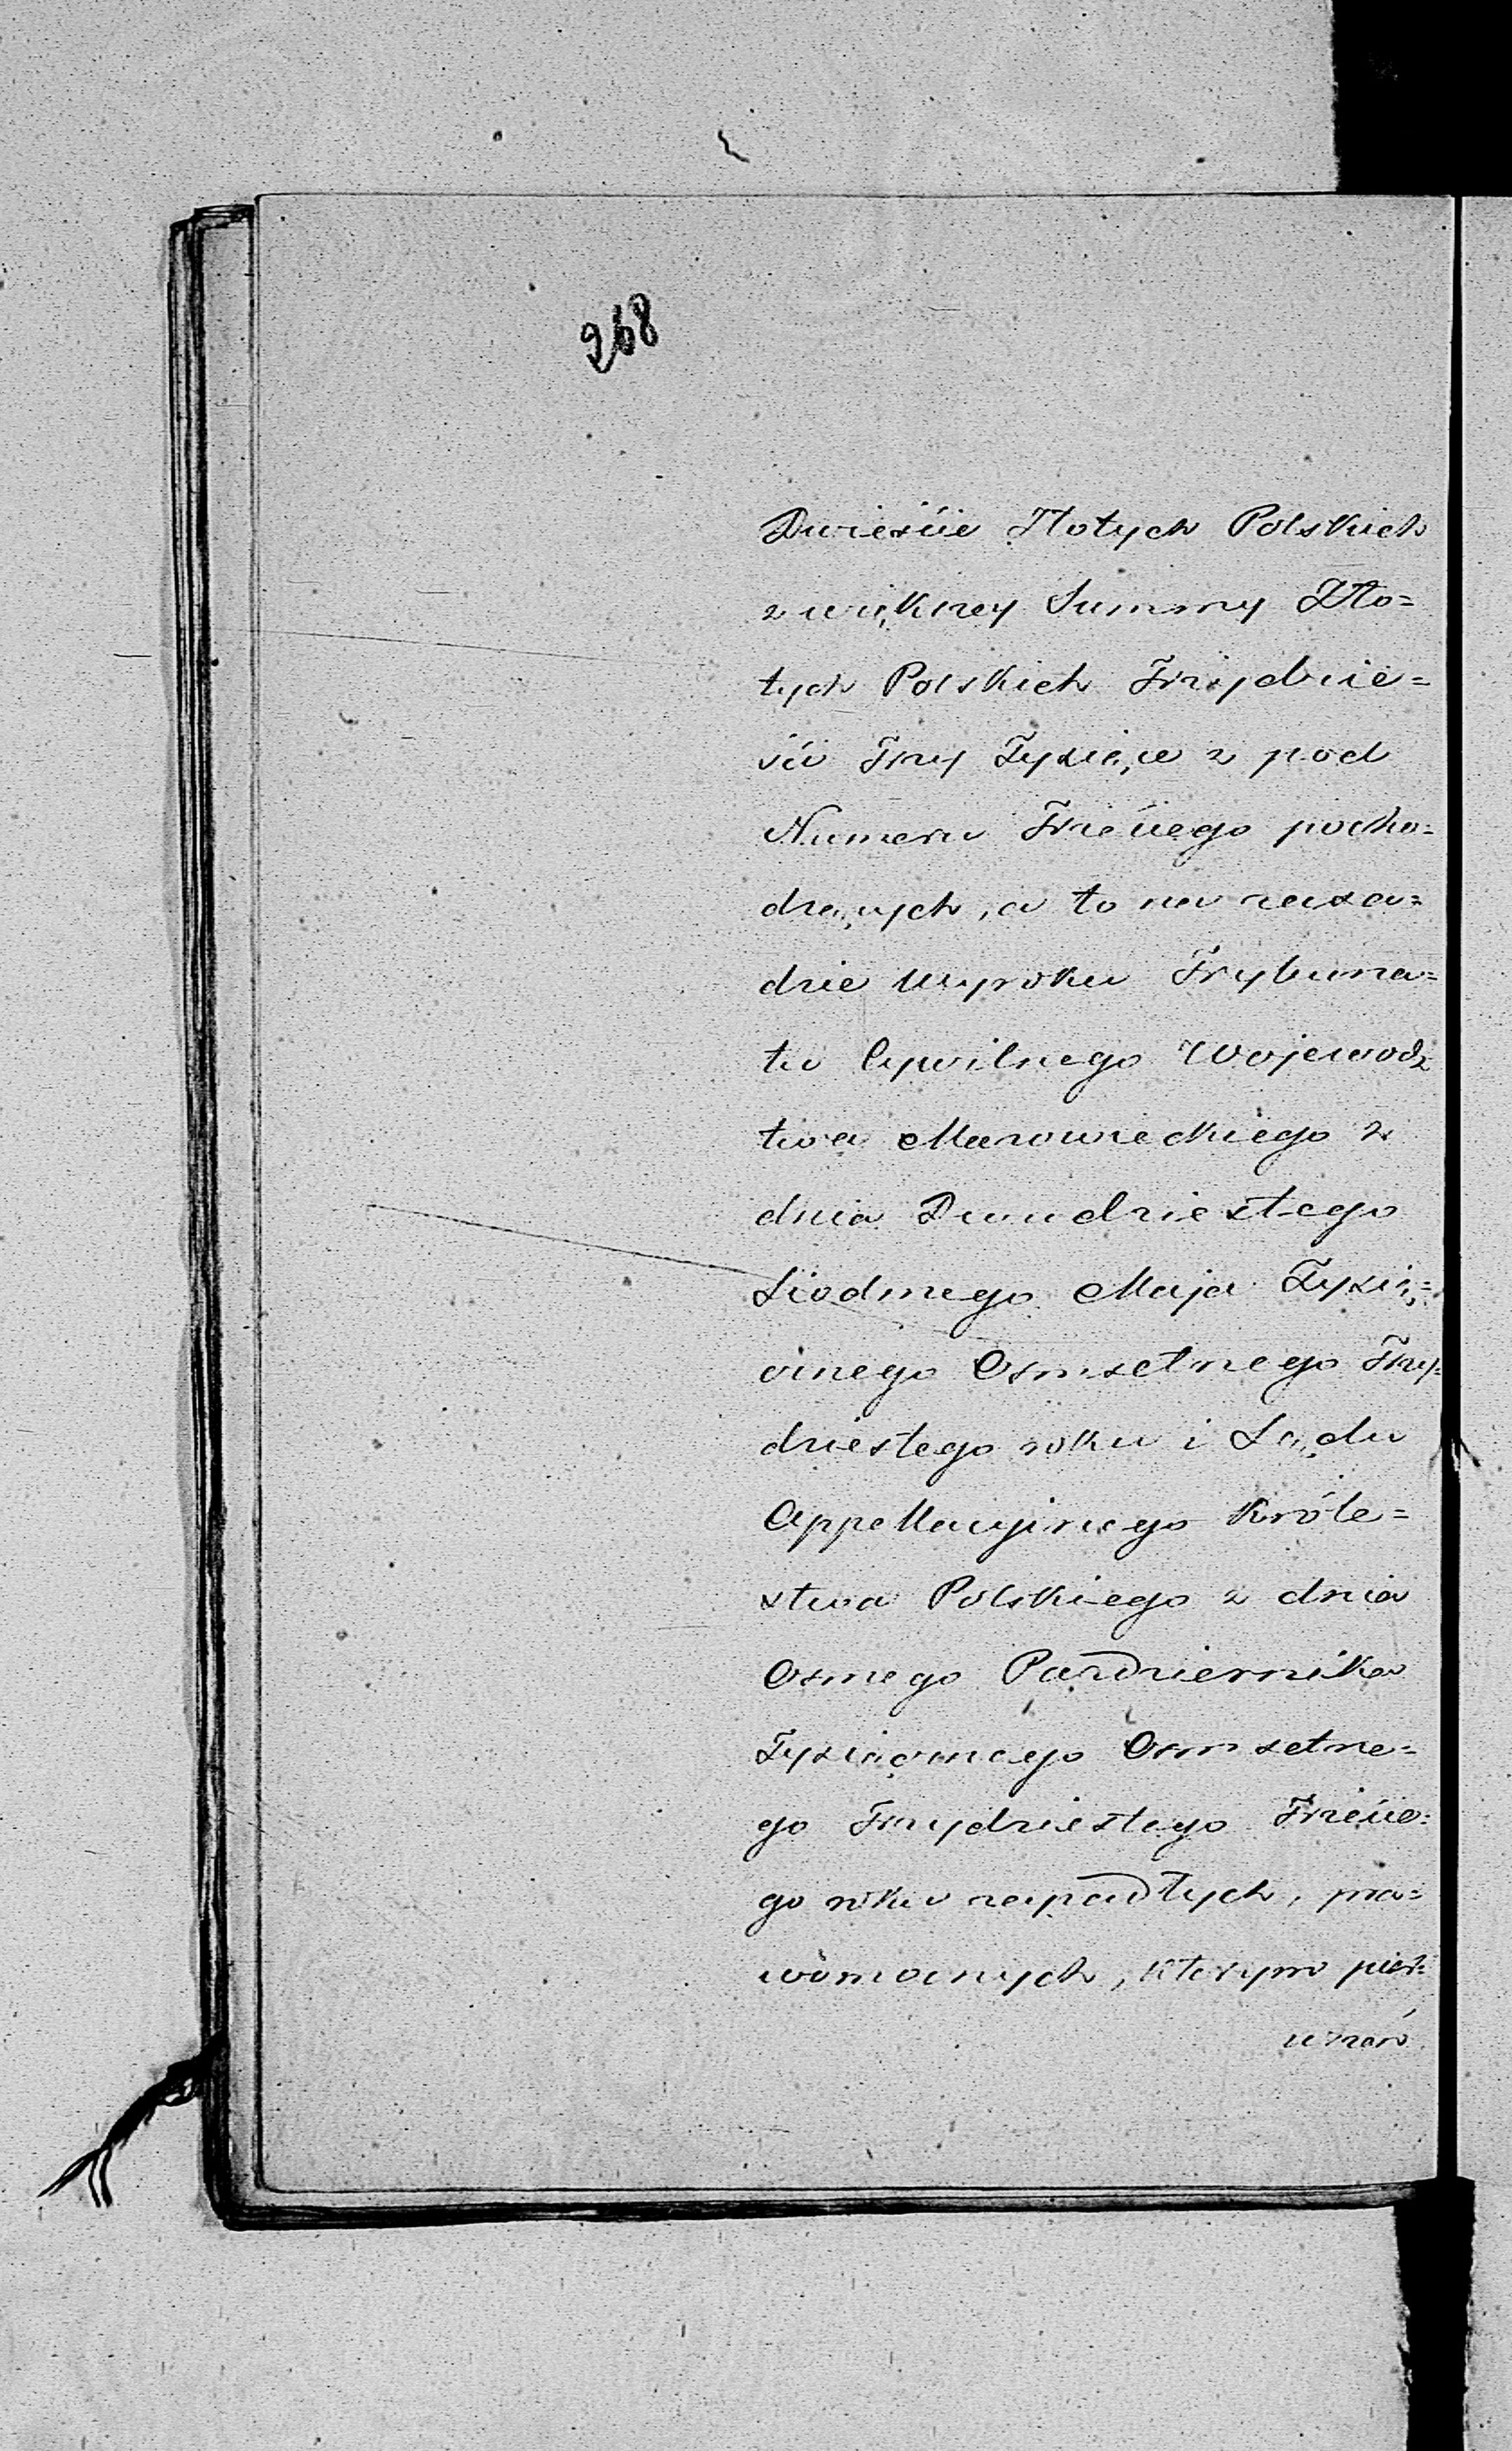 268
Dwieście Złotych Polskich
z większey Summy Zło=
tych Polskich Trzydzie=
ści Trzy Tysiące z pod
Numeru Trzeciego pocho=
dzących, a to na zasa=
dzie Wyroku Trybuna=
łu Cywilnego Wojewodz
twa Mazowieckiego z
dnia Dwudziestego
Siodmego Maja Tysią=
cznego Osmsetnego Trzy=
dziestego roku i Sądu
Appellacyinego Króle=
stwa Polskiego z dnia
Osmego Października
Tysiącznego Osmsetne=
go Trzydziestego Trzecie=
go roku zapadłych, pra=
womocnych, którym pier=
wszeń